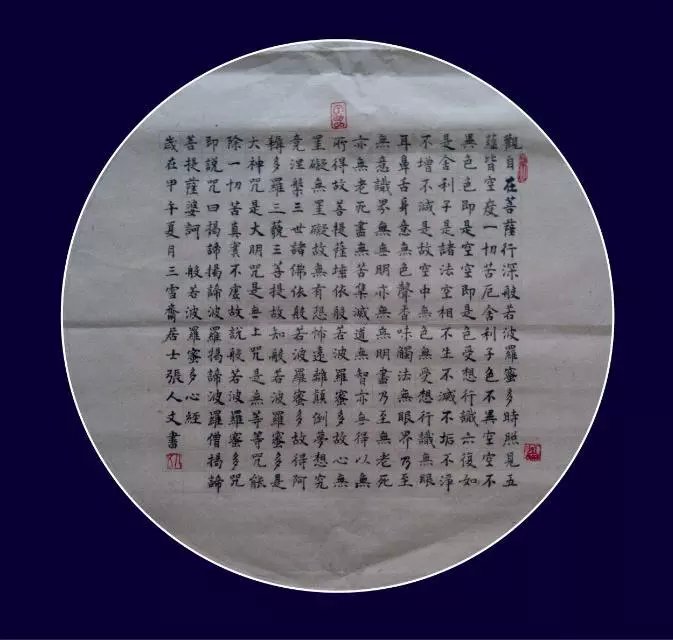 觀自在菩薩行深般若波羅蜜多時照見五
蘊皆空度一切苦厄舍利子色不異空空不
異色色即是空空即是色受想行識亦復如
是舍利子是諸法空相不生不滅不垢不淨
不增不減是故空中無色無受想行識無眼
耳鼻舌身意無色聲香味觸法無眼界乃至
無意識界無無明亦無無明盡乃至無老死
亦無老死盡無苦集滅道無智亦無得以無
所得故菩提薩埵依般若波羅蜜多故心無
罣礙無罣礙故無有恐怖遠離顛倒夢想究
竟涅槃三世諸佛依般若波羅蜜多故得阿
耨多羅三藐三菩提故知般若波羅蜜多是
大神咒是大明咒是無上咒是無等等咒能
除一切苦真實不虛故說般若波羅蜜多咒
即說咒曰揭諦揭諦波羅揭諦波羅僧揭諦
菩提薩婆訶 般若波羅蜜多心經
歲在甲午夏月三雪齋居士張人文書